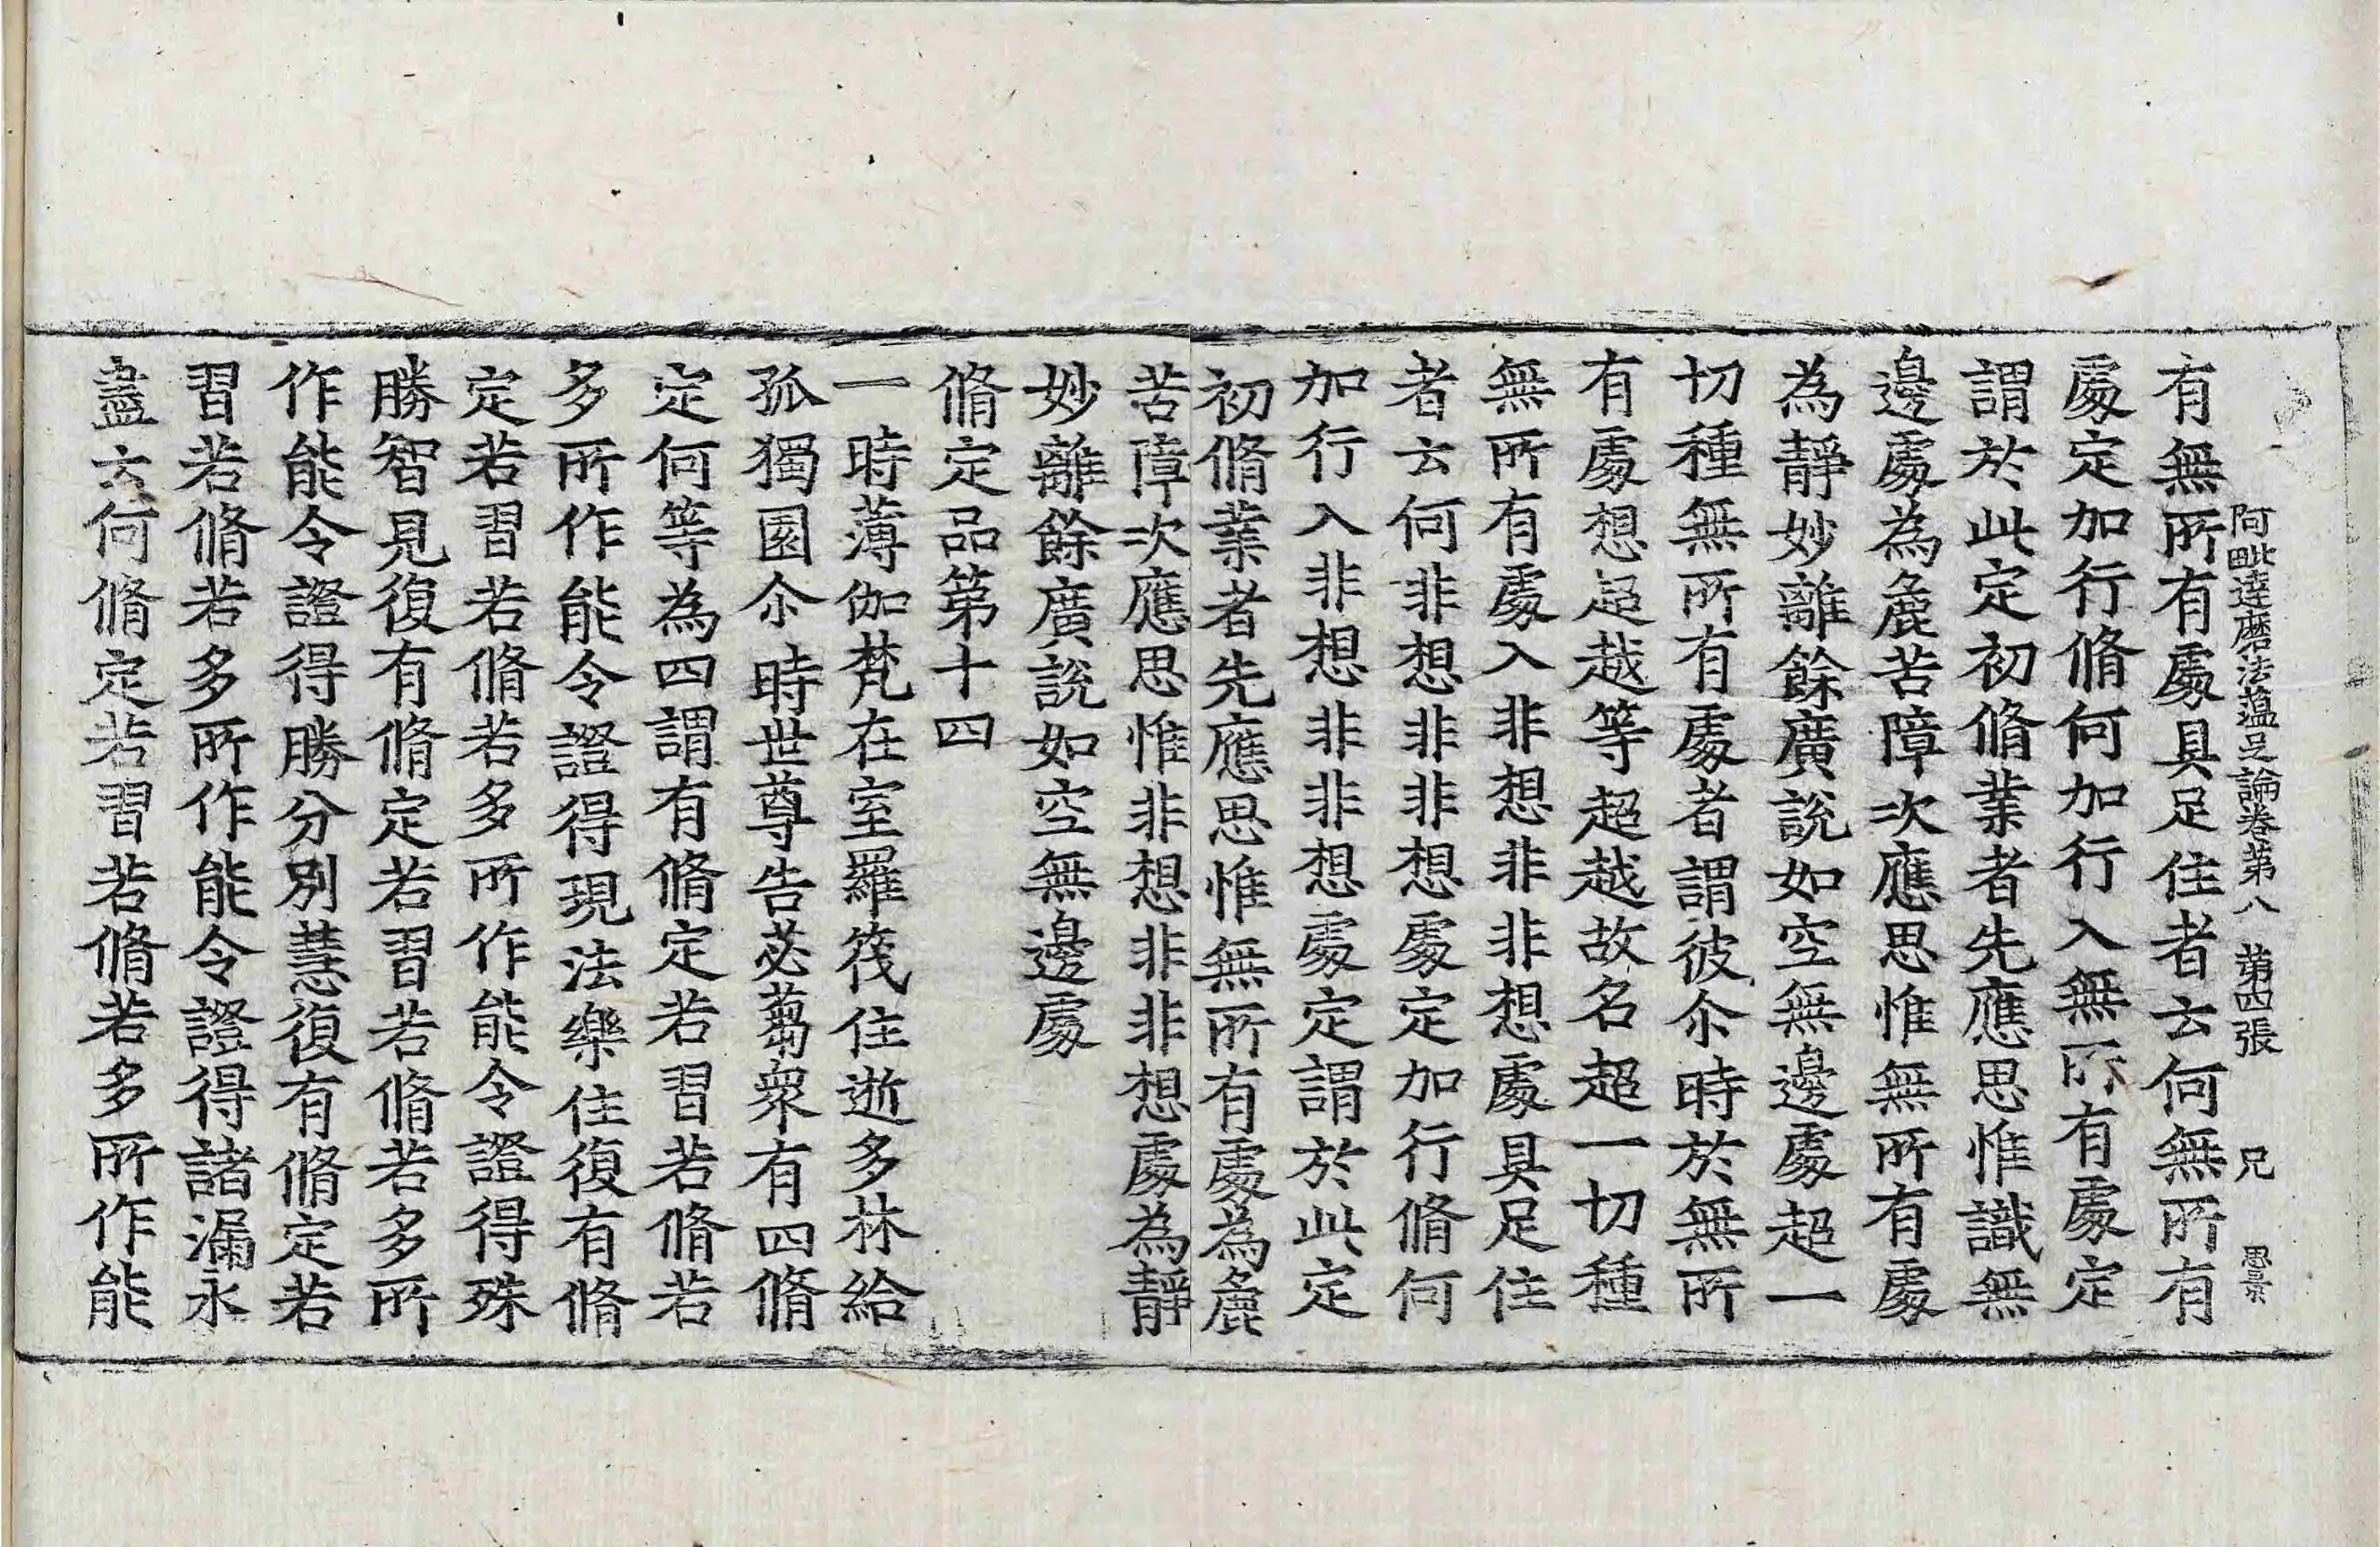 阿毗達磨法蘊足論卷第八 第四張 兄
有無所有處具足住者云何無所有
處定加行脩何加行入無所有處定
謂於此定初脩業者先應思惟識無
邊處為麁苦障次應思惟無所有處
為靜妙離餘廣說如空無邊處超一
切種無所有處者謂彼尒時於無所
有處想超越等超越故名超一切種
無所有處入非想非非想處具足住
者云何非想非非想處定加行脩何
加行入非想非非想處定謂於此定
初脩業者先應思惟無所有處為麁
苦障次應思惟非想非非想處為靜
妙離餘廣說如空無邊處
脩定品第十四
一時薄伽梵在室羅筏住逝多林給
孤獨園尒時世尊告苾蒭眾有四脩
定何等為四謂有脩定若習若脩若
多所作能令證得現法樂住復有脩
定若習若脩若多所作能令證得殊
勝智見復有脩定若習若脩若多所
作能令證得勝分別慧復有脩定若
習若脩若多所作能令證得諸漏永
盡云何脩定若習若脩若多所作能